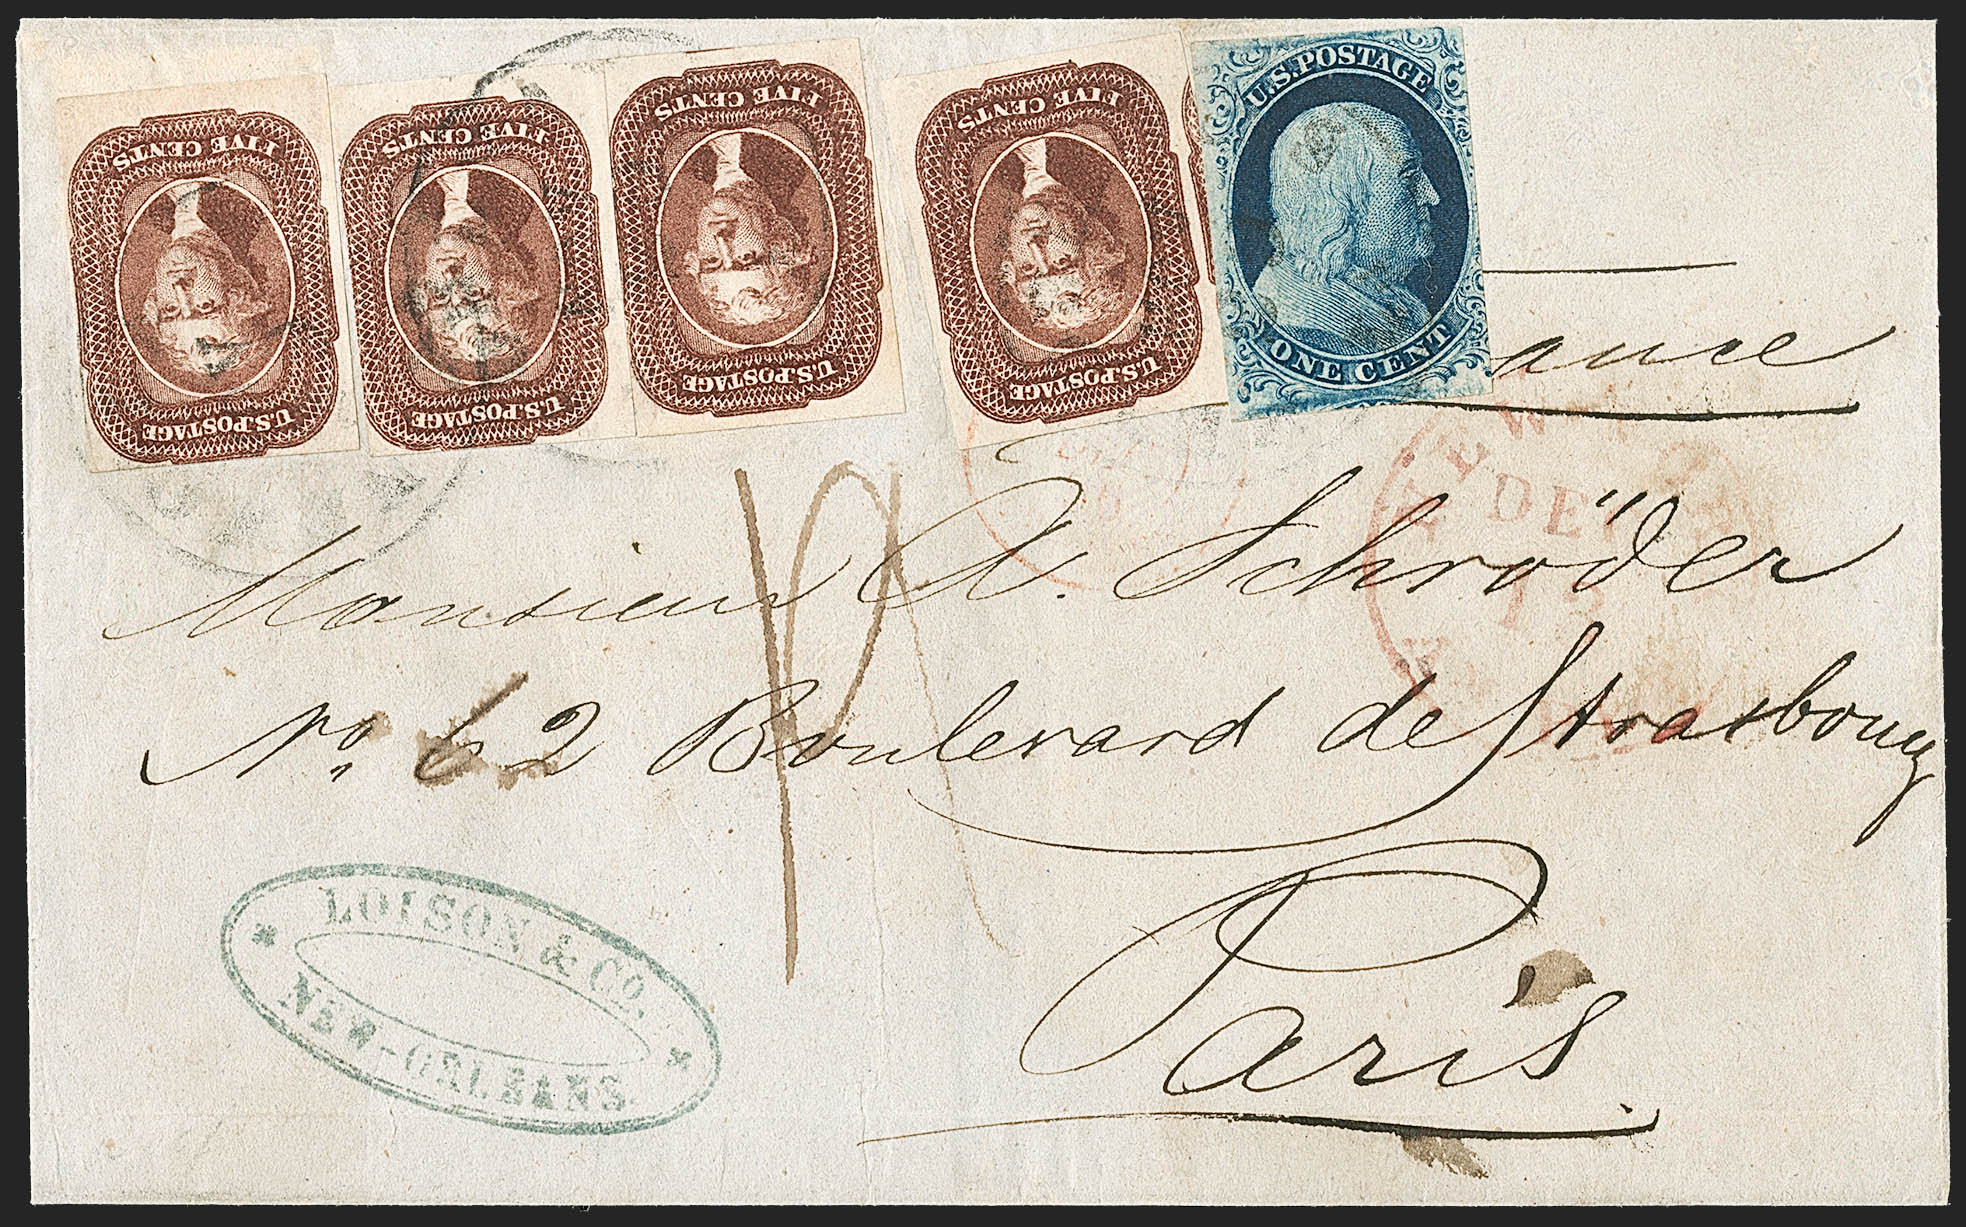 FIVE CENTS
U.S.POSTAGE
FIVE CENTS
U.S.POSTAGE
FIVE CENTS
U.S.POSTAGE
FIVE CENTS
U.S.POSTAGE
U.S.POSTAGE
ONE CENT
ance
Monsieur A. Schröder
No. 62 Boulevard de Strasbourg
Paris.
LOISON & CO.
NEW-ORLEANS